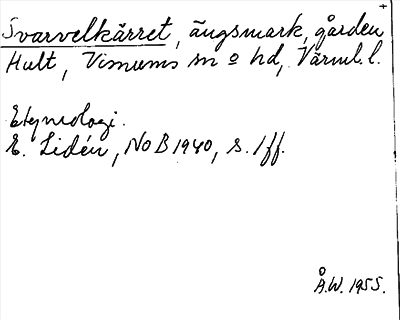 Svarvelkärret, ängsmark, gården
Hult, Visnums sn o hd, Värml. l.
Etymologi.
E. Lidén, NoB 1940, s. 1 ff.
Å.W. 1955.